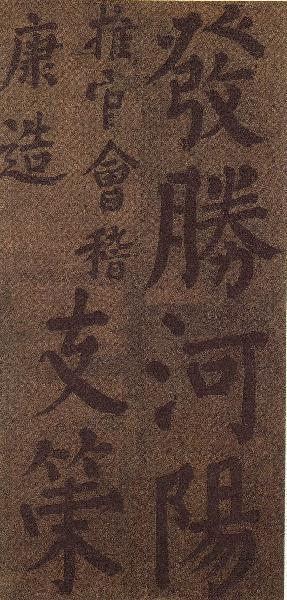 發勝河陽
推官會稽
康造
支策